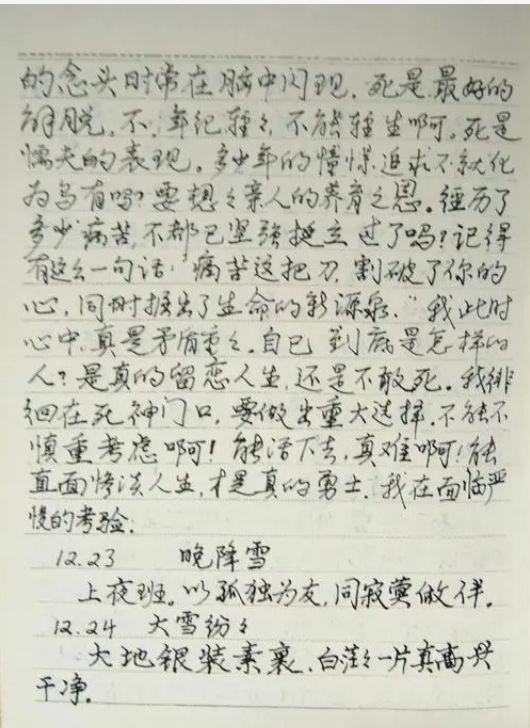 的念头时常在脑中闪现，死是最好的
解脱。不，年纪轻々，不能轻生啊。死是
懦夫的表现。多少年的憧憬追求不就化
为乌有吗？要想々亲人的养育之恩。经历了
多少病苦，不都已坚强挺立过了吗？记得
有这么一句话：“痛苦这把刀，割破了你的
心，同时掘出了生命的新源泉。”我此时
心中真是矛盾重々。自己到底是怎样的
人？是真的留恋人生，还是不敢死。我徘
徊在死神门口，要做出重大选择，不能不
慎重考虑啊！能活下去，真难啊！能
直面惨淡人生，才是真的勇士。我在面临严
峻的考验。
12.23 晚降雪
上夜班。以孤独为友，同寂寞做伴。
12.24 大雪纷々
大地银装素裹，白茫々一片真高兴
干净。